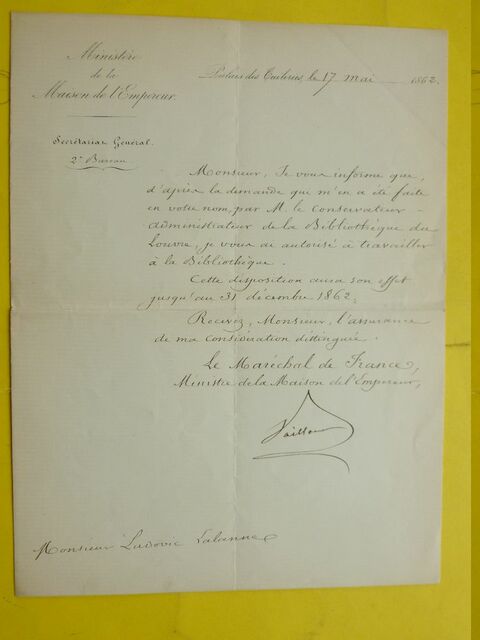 Ministère
de la
Maison de l'Empereur.
Palais des Tuileries, le 17 mai 1862.
Secrétariat Général.
2e Bureau
Monsieur, Je vous informe que,
d'après la demande qui m'en a été faite
en votre nom, par M. le Conservateur-
administrateur de la Bibliothèque du
Louvre, je vous ai autorisé à travailler
à la Bibliothèque.
Cette disposition aura son effet
jusqu'au 31 décembre 1862.
Recevez, Monsieur, l'assurance
de ma Considération distinguée.
Le Maréchal de France,
Ministre de la Maison de l'Empereur,
Vaillant
Monsieur Ludovic Lalanne